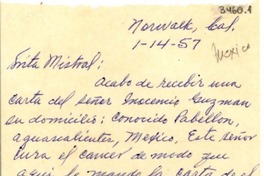 3460.1
Norwalk, Cal.
1-14-57
Mexico
Srita Mistral:
Acabo de recibir una
carta del señor Inocencio Guzman
su domicilio: conocido Pabellon,
aguascalientes, Mexico. Este señor
cura el cancer de modo que
aqui le mando la carta de el